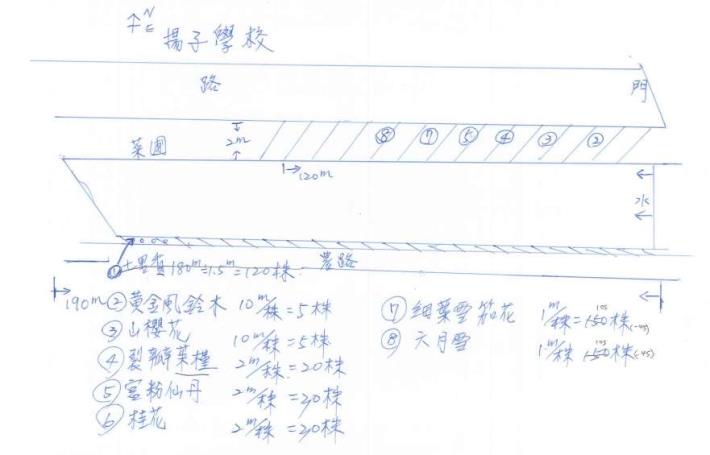 N
E
揚子學校
路
門
⑧ ⑦ ⑤ ④ ③ ②
2m
菜圃
120m
水
①土里真 180m=1.5m=120株
農路
190m
②黃金風鈴木 10m/株=5株
③山櫻花 10m/株=5株
④裂瓣菜槿 2m/株=20株
⑤宮粉仙丹 2m/株=20株
⑥桂花 2m/株=20株
⑦細葉雪茄花 1m/株=150株 105 (-45)
⑧六月雪 1m/株 150株 105 (-45)